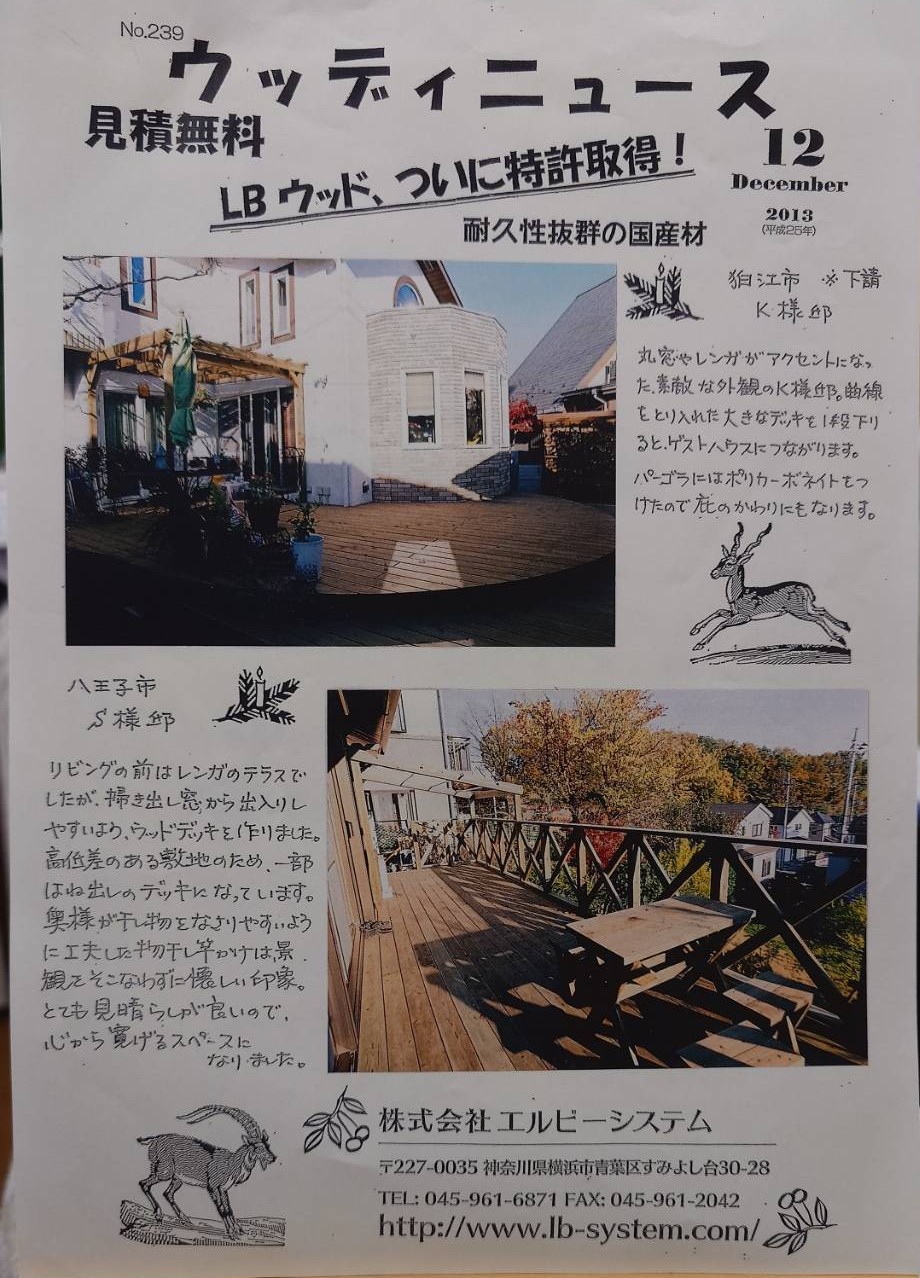 No.239
ウッディニュース
見積無料
LB ウッド、ついに特許取得！
12
December
2013
(平成25年)
耐久性抜群の国産材
狛江市 ※下請
K様邸
丸窓やレンガがアクセントになっ
た素敵な外観のK様邸。曲線
をとり入れた大きなデッキを1段下り
ると、ゲストハウスにつながります。
パーゴラにはポリカーボネイトをつ
けたので庇のかわりにもなります。
八王子市
S様邸
リビングの前はレンガのテラスで
したが、掃き出し窓から出入りし
やすいよう、ウッドデッキを作りました。
高低差のある敷地のため、一部
はね出しのデッキになっています。
奥様が干し物をなさりやすいよう
に工夫した物干し竿かけは、景
観をそこなわずに懐しい印象。
とても見晴らしが良いので、
心から寛げるスペースに
なりました。
株式会社 エルビーシステム
〒227-0035 神奈川県横浜市青葉区すみよし台30-28
TEL: 045-961-6871 FAX: 045-961-2042
http://www.lb-system.com/